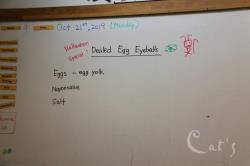 Oct. 21st, 2019 (Monday)
Halloween
Special :
Deviled Egg Eyeballs
Eggs - egg yolk
Mayonnaise
Salt
Cat's